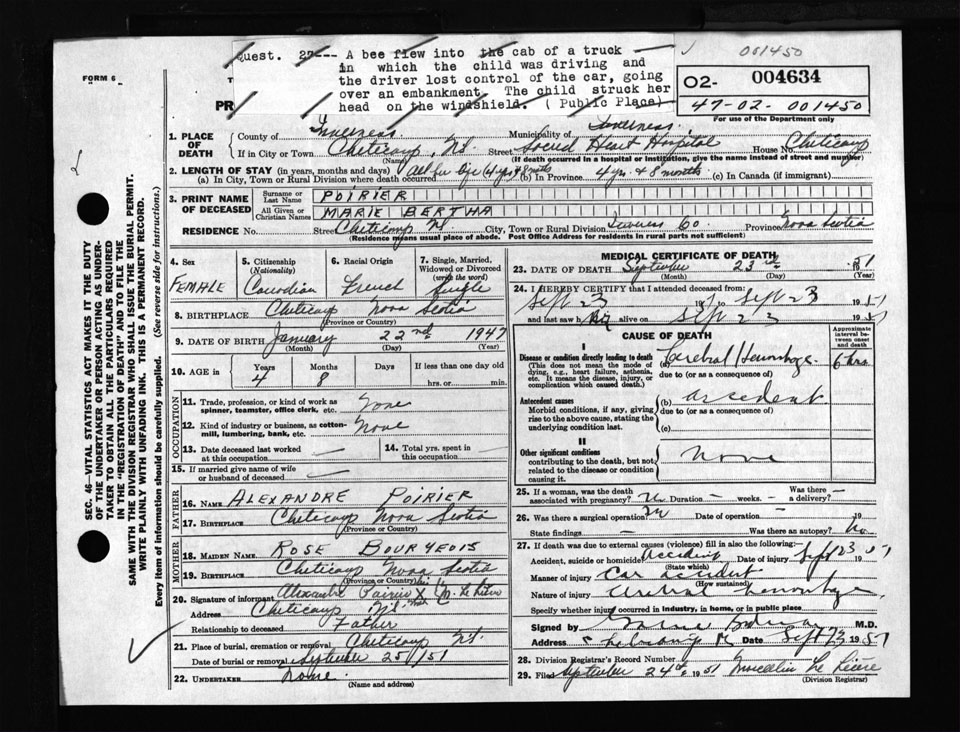 Quest. 27--- A bee flew into the cab of a truck
in which the child was driving and
the driver lost control of the car, going
over an embankment. The child struck her
head on the windshield. ( Public Place)
001450
O2- 004634
47-02-001450
For use of the Department only
FORM 6
T
PR
1. PLACE OF DEATH
County of Inverness Municipality of Inverness
If in City or Town Cheticamp, N.S. Street Sacred Heart Hospital House No. Cheticamp
(Name) (If death occurred in a hospital or institution, give the name instead of street and number)
2. LENGTH OF STAY (in years, months and days)
(a) In City, Town or Rural Division where death occurred All her life (4 yrs + 8 months (b) In Province 4 yrs. & 8 months (c) In Canada (if immigrant)
3. PRINT NAME OF DECEASED
Surname or Last Name POIRIER
All Given or Christian Names MARIE BERTHA
RESIDENCE No. Street Cheticamp N.S. City, Town or Rural Division Inverness Co Province Nova Scotia
(Residence means usual place of abode. Post Office Address for residents in rural parts not sufficient)
4. Sex FEMALE
5. Citizenship (Nationality) Canadian
6. Racial Origin French
7. Single, Married, Widowed or Divorced (write the word) Single
8. BIRTHPLACE Cheticamp Nova Scotia
(Province or Country)
9. DATE OF BIRTH January 22nd 1947
(Month) (Day) (Year)
10. AGE in Years 4 Months 8 Days If less than one day old
hrs. or min.
OCCUPATION
11. Trade, profession, or kind of work as spinner, teamster, office clerk, etc. None
12. Kind of industry or business, as cotton-mill, lumbering, bank, etc. None
13. Date deceased last worked at this occupation —
14. Total yrs. spent in this occupation —
15. If married give name of wife or husband of deceased —
FATHER
16. NAME ALEXANDRE POIRIER
17. BIRTHPLACE Cheticamp Nova Scotia
(Province or Country)
MOTHER
18. MAIDEN NAME ROSE BOURGEOIS
19. BIRTHPLACE Cheticamp Nova Scotia
(Province or Country)
20. Signature of informant Alexandre Poirier X
Address Cheticamp N.S.
Relationship to deceased Father
21. Place of burial, cremation or removal Cheticamp N.S.
Date of burial or removal September 25/51
22. UNDERTAKER None.
(Name and address)
MEDICAL CERTIFICATE OF DEATH
23. DATE OF DEATH September 23rd 51
(Month) (Day) (Year)
24. I HEREBY CERTIFY that I attended deceased from:
Sept 23 19 to Sept 23 1951
and last saw her alive on Sept 23 1951
CAUSE OF DEATH
Approximate interval between onset and death
I
Disease or condition directly leading to death
(This does not mean the mode of dying, e.g., heart failure, asthenia, etc. It means the disease, injury, or complication which caused death.)
(a) Cerebral Hemorrhage 6 hrs.
due to (or as a consequence of)
Antecedent causes
Morbid conditions, if any, giving rise to the above cause, stating the underlying condition last.
(b) accident
due to (or as a consequence of)
(c)
II
Other significant conditions
contributing to the death, but not related to the disease or condition causing it.
None
25. If a woman, was the death associated with pregnancy? No Duration – weeks. – Was there a delivery? –
26. Was there a surgical operation? No Date of operation –
State findings – Was there an autopsy? No
27. If death was due to external causes (violence) fill in also the following:—
Accident, suicide or homicide? Accident Date of injury Sept 23 1951
(State which)
Manner of injury Car accident
(How sustained)
Nature of injury Cerebral hemorrhage
Specify whether injury occurred in industry, in home, or in public place
Signed by M.D.
Address Date Sept 23 1951
28. Division Registrar's Record Number
29. Filed September 24th 1951
(Division Registrar)
SEC. 46—VITAL STATISTICS ACT MAKES IT THE DUTY
OF THE UNDERTAKER OR PERSON ACTING AS UNDER-
TAKER TO OBTAIN ALL THE PARTICULARS REQUIRED
IN THE "REGISTRATION OF DEATH" AND TO FILE THE
SAME WITH THE DIVISION REGISTRAR WHO SHALL ISSUE THE BURIAL PERMIT.
WRITE PLAINLY WITH UNFADING INK. THIS IS A PERMANENT RECORD.
Every item of information should be carefully supplied. (See reverse side for instructions.)